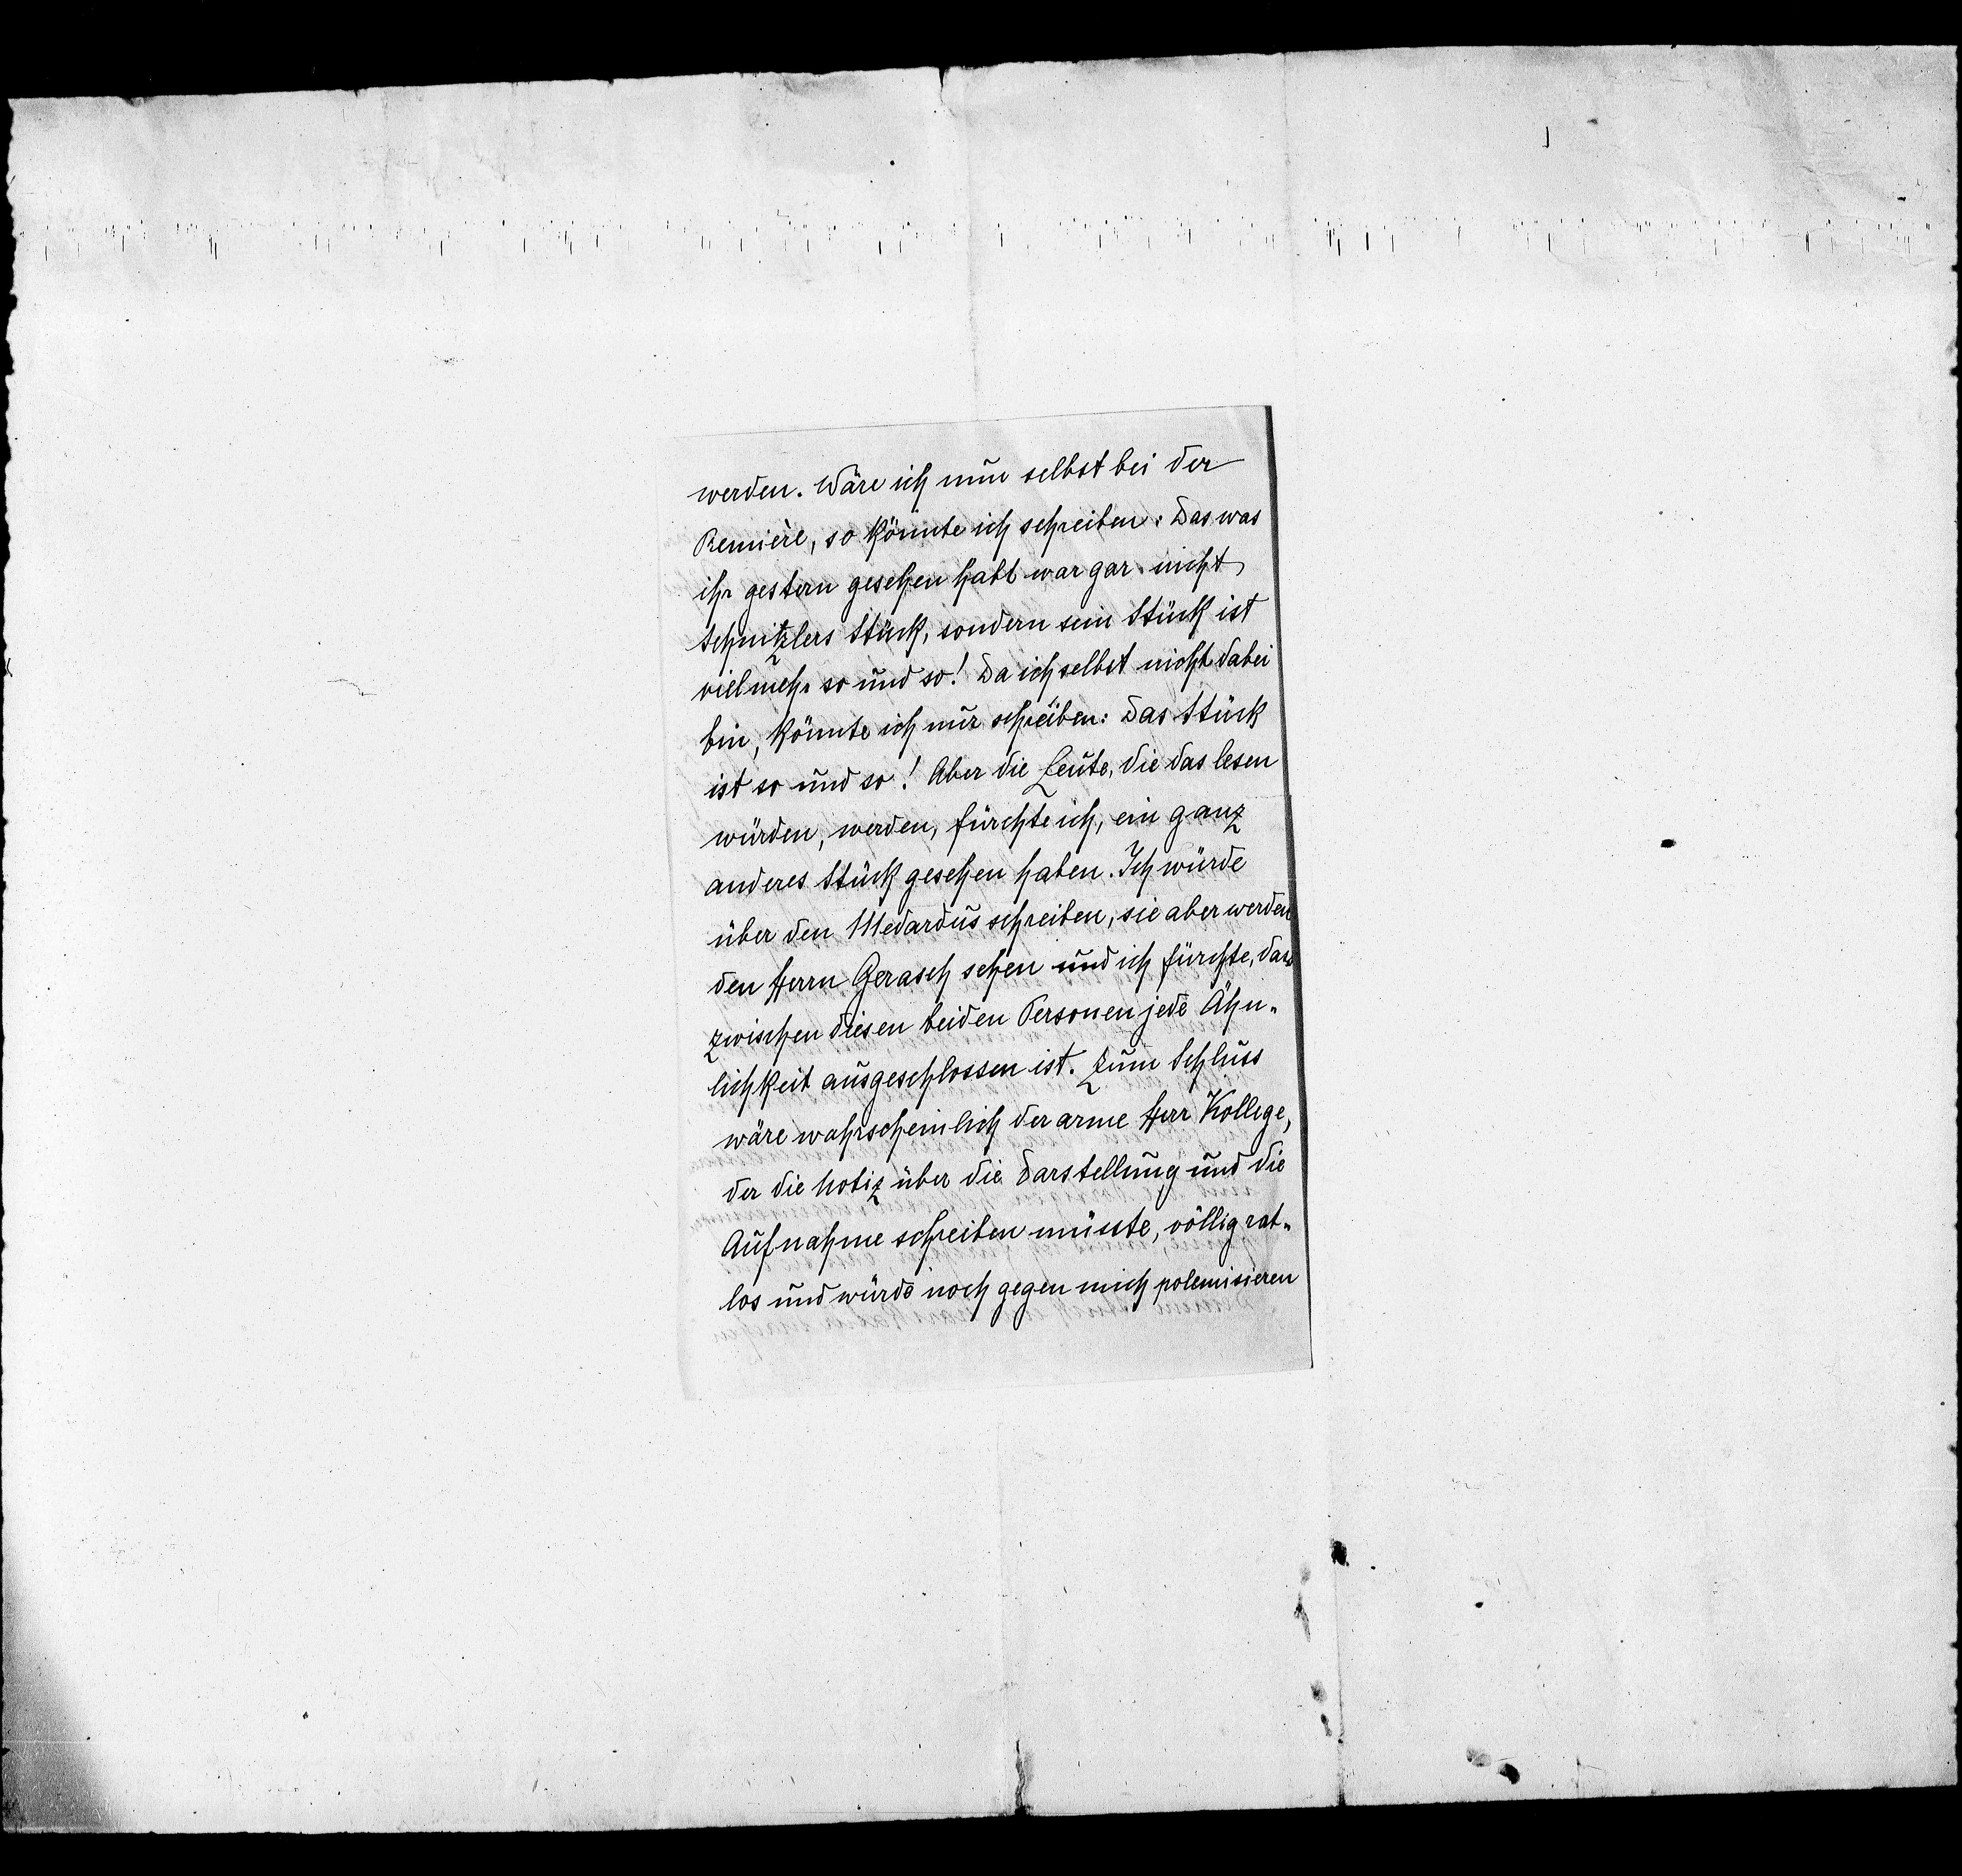 werden. Wäre ich nun selbst bei der
Première, so könnte ich schreiben: Das was
ihr gestern gesehen habt war gar nicht
Schnitzlers Stück, sondern sein Stück ist
vielmehr so und so! Da ich selbst nicht dabei
bin, könnte ich nur schreiben: Das Stück
ist so und so! Aber die Leute, die das lesen
würden, werden, fürchte ich, ein ganz
anderes Stück gesehen haben. Ich würde
über den Medardus schreiben, sie aber werden
den Herrn Gerasch sehen und ich fürchte, dass
zwischen diesen beiden Personen jede Ähn-
lichkeit ausgeschlossen ist. Zum Schluss
wäre wahrscheinlich der arme Herr Kollege,
der die Notiz über die Darstellung und die
Aufnahme schreiben müsste, völlig rat-
los und würde noch gegen mich polemisieren